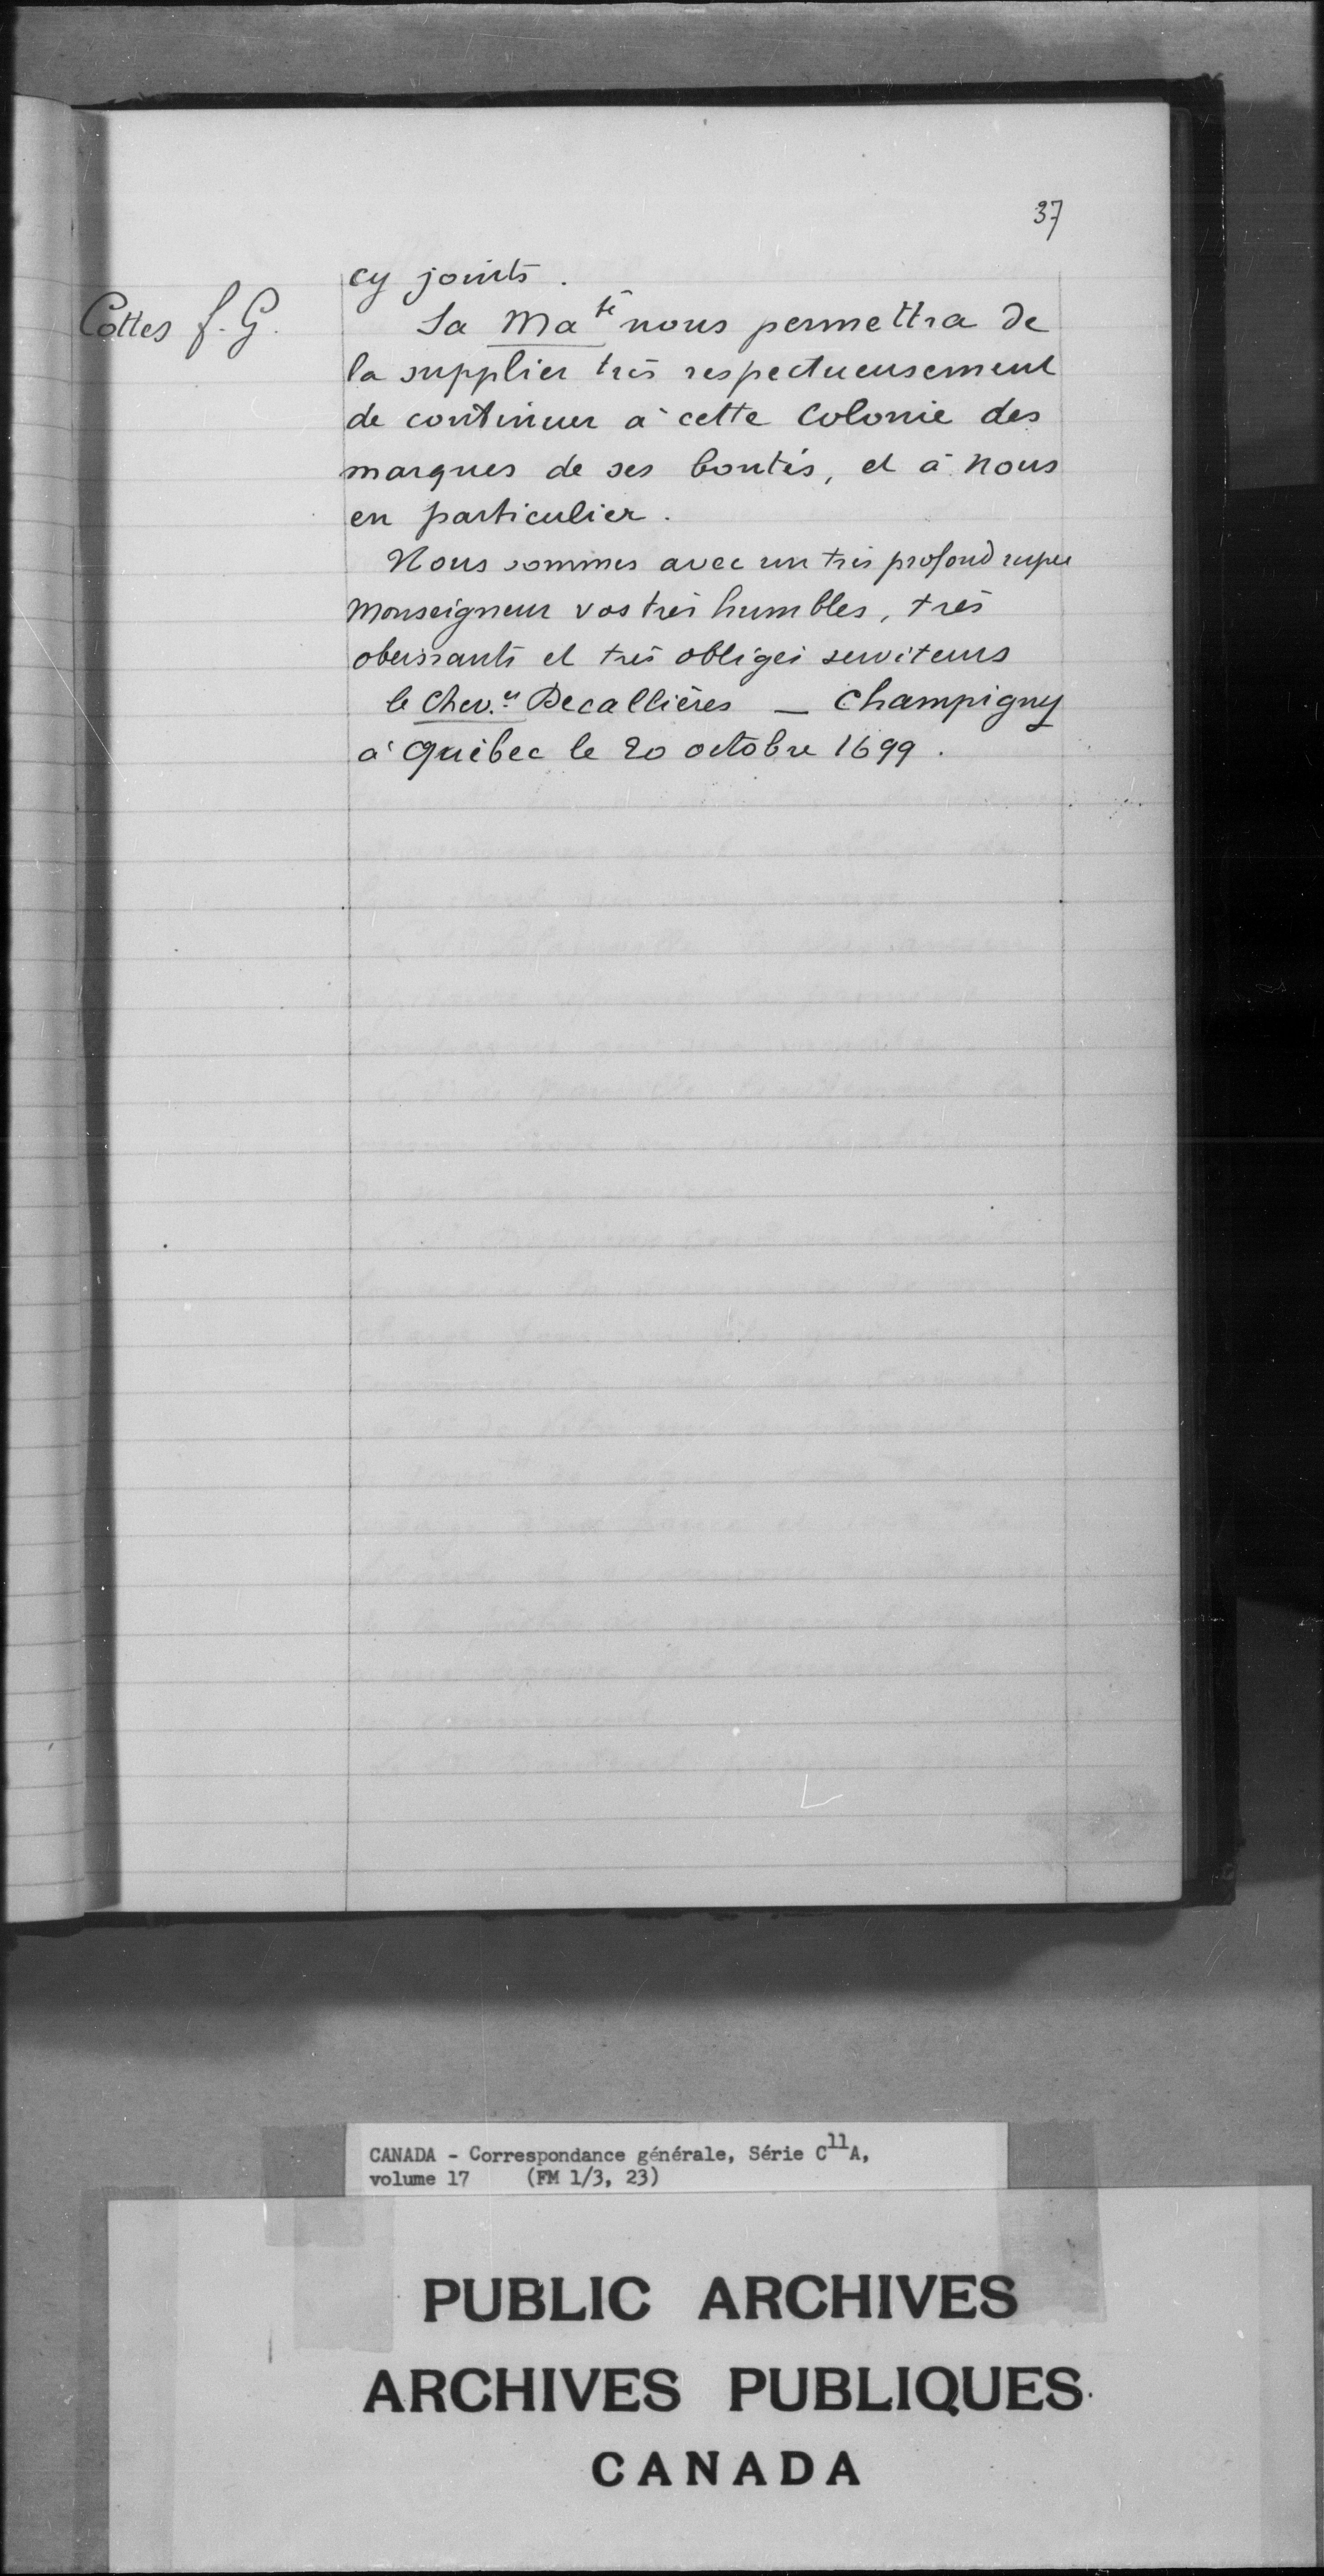 37
cy joints.
Cottes f. G.
Sa Maté nous permettra de
la supplier très respectueusement
de continuer à cette Colonie des
marques de ses bontés, et à nous
en particulier.
Nous sommes avec un très profond
Monseigneur vos très humbles, très
obeissants et très obligés serviteurs
le Chev.er Decallières — Champigny
à Québec le 20 octobre 1699.
CANADA - Correspondance générale, Série C11A,
volume 17 (FM 1/3, 23)
PUBLIC ARCHIVES
ARCHIVES PUBLIQUES
CANADA